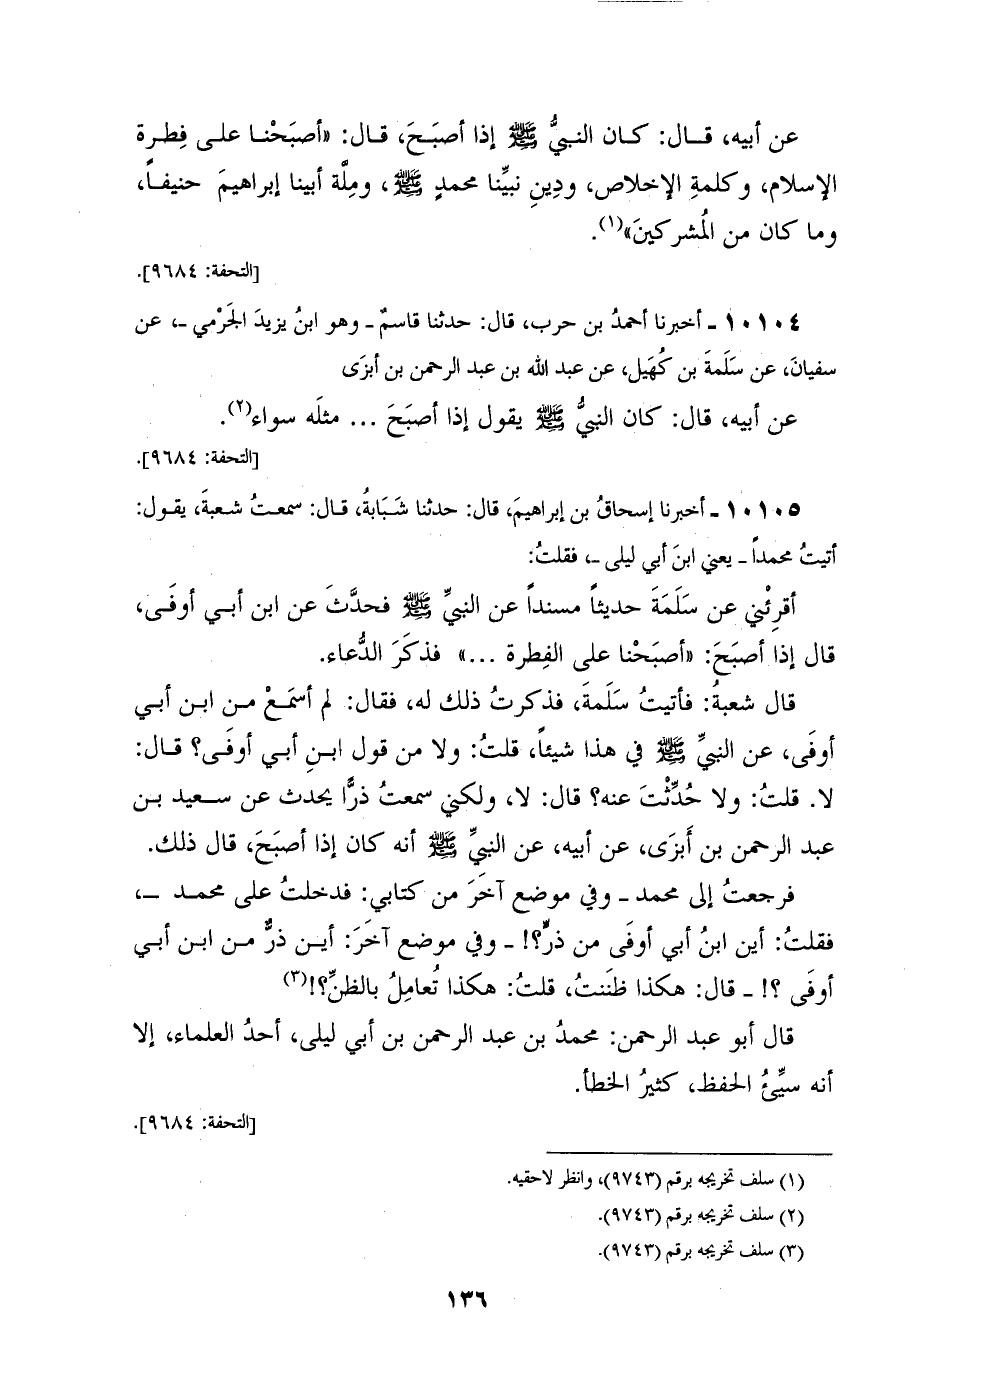 عن أبيه، قـال: كـان النبيُّ ﷺ إذا أصبَـحَ، قـال: «أصبَحْنا على فِطرة
الإسلام، وكلمةِ الإخلاص، ودِينِ نبيِّنا محمدٍ ﷺ، ومِلَّة أبينا إبراهيمَ حنيفـاً،
وما كان من المُشركينَ»(١).
[التحفة: ٩٦٨٤].
١٠١٠٤ ـ أخبرنا أحمدُ بن حرب، قال: حدثنا قاسمٌ ـ وهو ابنُ يزيدَ الجَرْمي ـ، عن
سفيانَ، عن سَلَمةَ بن كُهَيل، عن عبد الله بن عبد الرحمن بن أبزَى
عن أبيه، قال: كان النبيُّ ﷺ يقول إذا أصبَحَ ... مثلَه سواء(٢).
[التحفة: ٩٦٨٤].
١٠١٠٥ ـ أخبرنا إسحاقُ بن إبراهيمَ، قال: حدثنا شَبَابةُ، قـال: سمعتُ شعبةَ، يقـول:
أتيتُ محمداً ـ يعني ابنَ أبي ليلى ـ، فقلتُ:
أقرِئْني عن سَلَمَةَ حديثاً مسنداً عن النبيِّ ﷺ فحدَّثَ عن ابن أبـي أوفَـى،
قال إذا أصبَحَ: «أصبَحْنا على الفِطرة ...» فذكَرَ الدُّعاء.
قال شعبةُ: فأتيتُ سَلَمةَ، فذكرتُ ذلك له، فقال: لم أسمَعْ مـن ابـن أبـي
أوفَى، عن النبيِّ ﷺ في هذا شيئاً، قلتُ: ولا من قول ابـنِ أبـي أوفَـى؟ قـال:
لا. قلتُ: ولا حُدِّثْتَ عنه؟ قال: لا، ولكني سمعتُ ذرًّا يحدث عن سـعيد بـن
عبد الرحمن بن أَبزَى، عن أبيه، عن النبيِّ ﷺ أنه كان إذا أصبَحَ، قال ذلك.
فرجعتُ إلى محمد ـ وفي موضع آخرَ من كتابي: فدخلتُ على محمـد ـ،
فقلتُ: أين ابنُ أبي أوفَى من ذرٍّ؟! ـ وفي موضع آخَرَ: أيـن ذرٌّ مـن ابـن أبـي
أوفَى ؟! ـ قال: هكذا ظَننتُ، قلتُ: هكذا تُعامِلُ بالظنِّ؟!(٣)
قال أبو عبد الرحمن: محمدُ بن عبد الرحمن بن أبي ليلى، أحدُ العلماء، إلا
أنه سيِّئُ الحفظ، كثيرُ الخطأ.
[التحفة: ٩٦٨٤].
(١) سلف تخريجه برقم (٩٧٤٣)، وانظر لاحقيه.
(٢) سلف تخريجه برقم (٩٧٤٣).
(٣) سلف تخريجه برقم (٩٧٤٣).
١٣٦